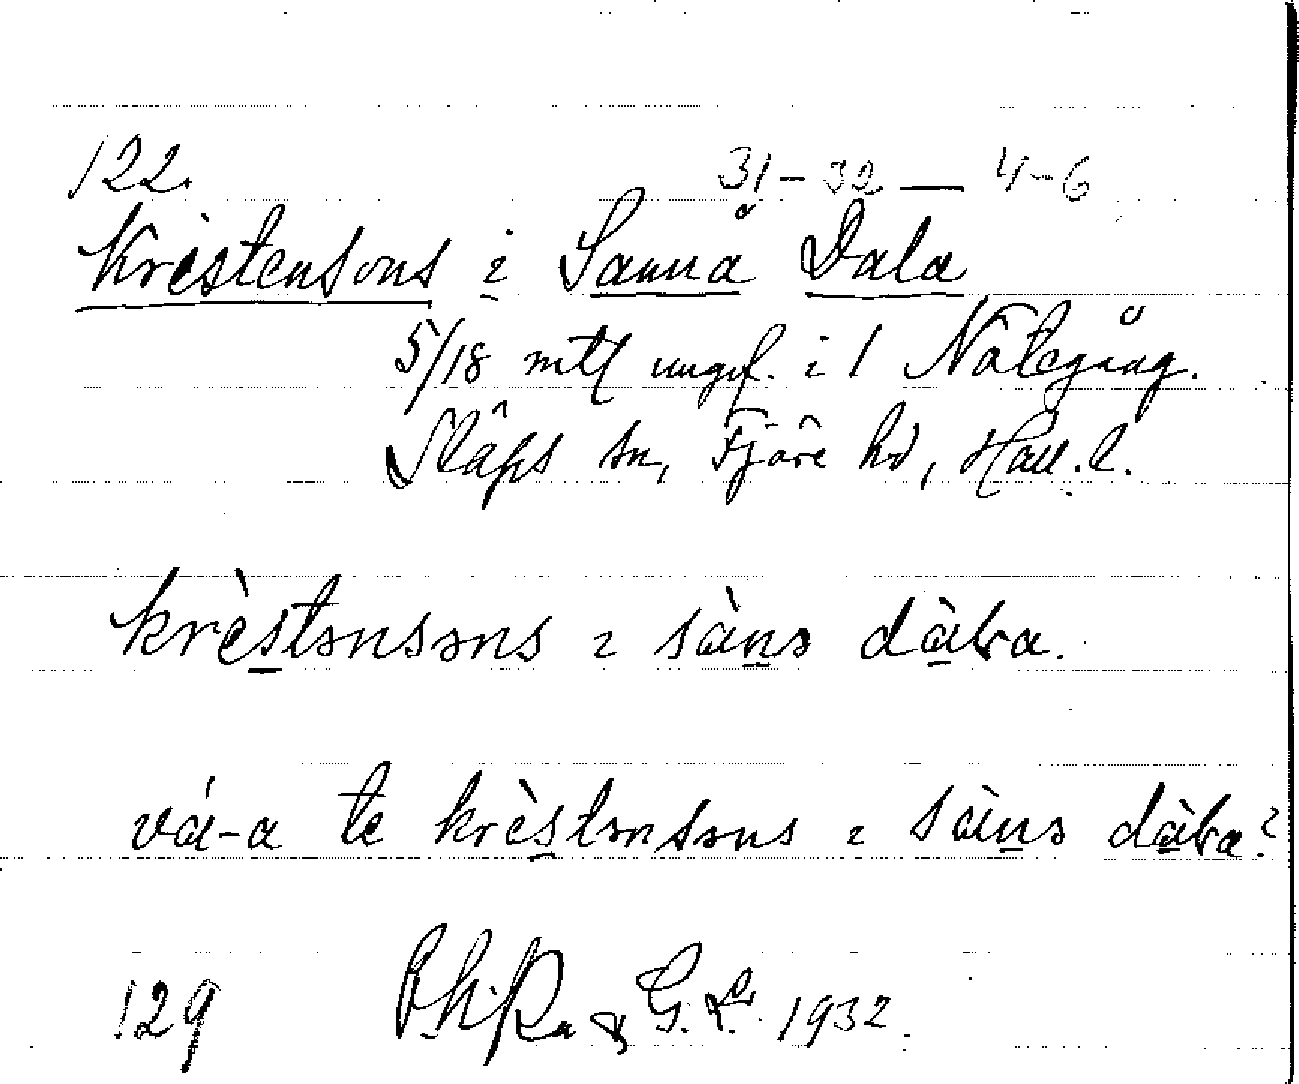 122. 31-32 — 4-6
Kristensons i Sanna Dala
5/18 mtl ungef. i 1 Nötegång.
Släps sn, Fjäre hd, Hall. l.
krèstənsəns ı sànə dàla.
vá-a te krèstənsəns ı sànə dàla?
129 & G. L. 1932.